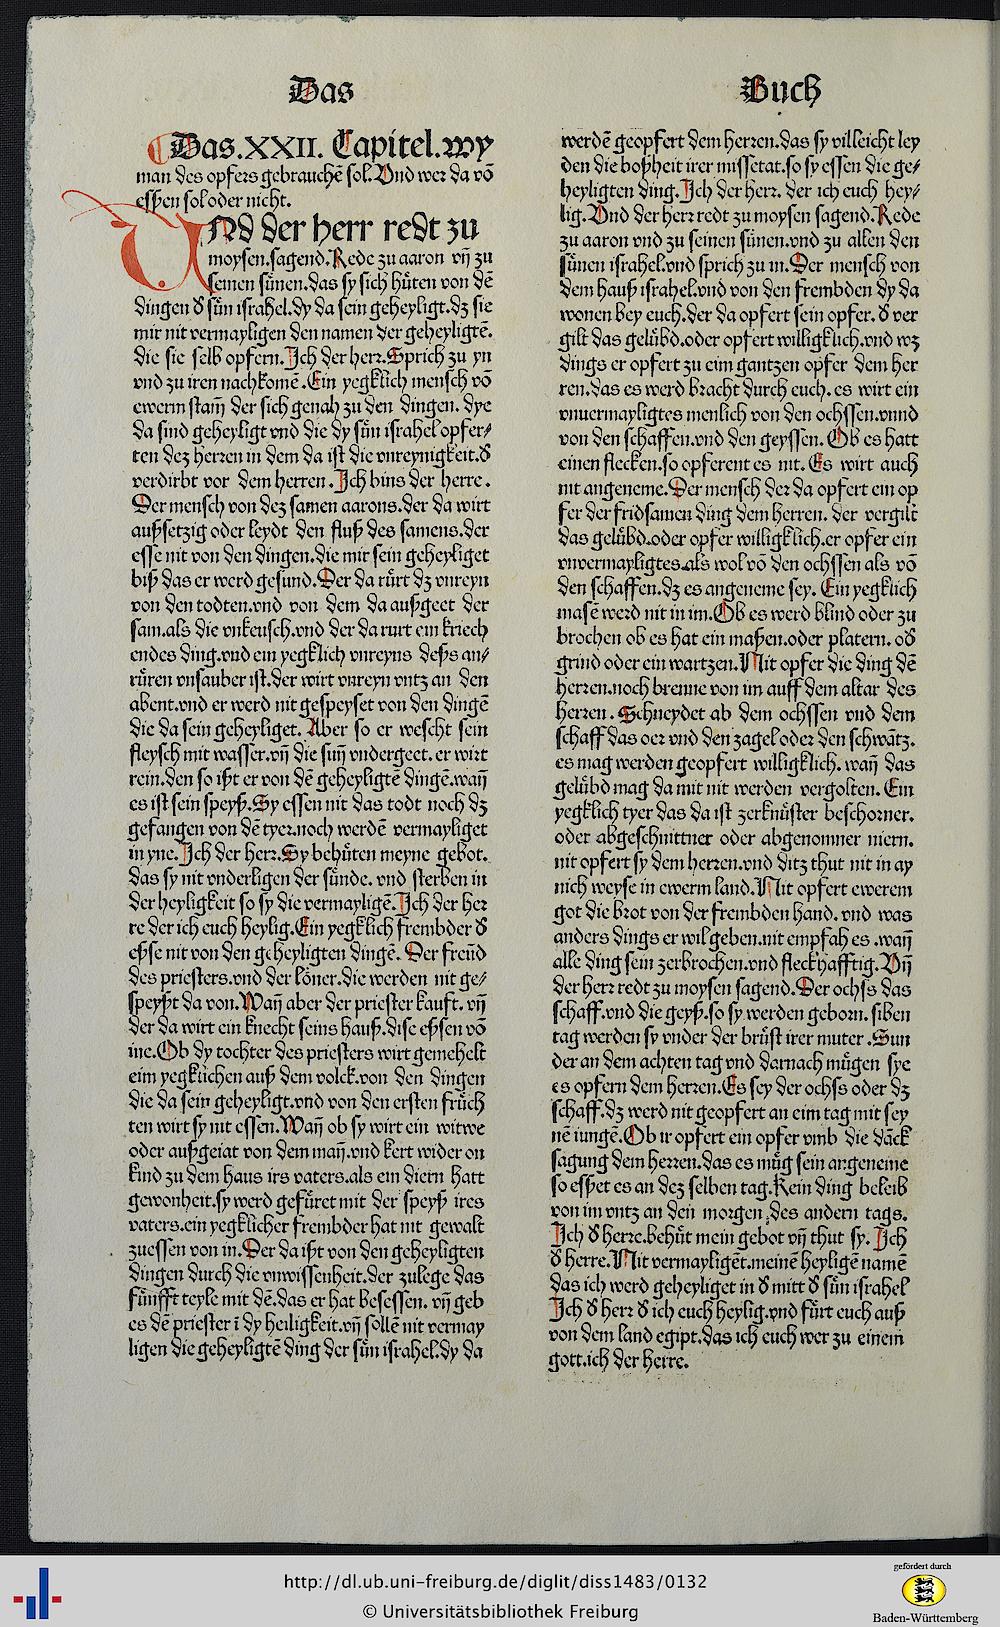 Das Buch
Das.XXII. Capitel.wy
man des opfers gebrauchē sol.Vnd wer da vō
essen sol oder nicht.
VNd der herr redt zu
moysen.sagend.Rede zu aaron vñ zu
seinen sünen.das sy sich hüten von dē
dingen d̕ sün israhel.dy da sein geheyligt.dz sie
mir nit vermayligen den namen der geheyligtē.
die sie selb opfern.Ich der herr.Sprich zu yn
vnd zu iren nachkomē.Ein yegklich mensch vō
ewerm stam̄ der sich genah zu den dingen. dye
da sind geheyligt vnd die dy sün israhel opfer⸗
ten dez herren in dem da ist die vnreynigkeit.d̕
verdirbt vor dem herren.Ich bins der herre.
Der mensch von dez samen aarons.der da wirt
außsetzig oder leydt den fluß des samens.der
esse nit von den dingen.die mir sein geheyliget
biß das er werd gesund.Der da rürt dz vnreyn
von den todten.vnd von dem da außgeet der
sam.als die vnkeusch.vnd der da rurt ein kriech
endes ding.vnd ein yegklich vnreyns deß an⸗
rüren vnsauber ist.der wirt vnreyn vntz an den
abent.vnd er werd nit gespeyset von den dingē
die da sein geheyliget. Aber so er wescht sein
fleysch mit wasser.vñ die sun̄ vndergeet. er wirt
rein.den so ißt er von dē geheyligtē dingē.wan̄
es ist sein speyß.Sy essen nit das todt noch dz
gefangen von dē tyer.noch werdē vermayliget
in yne.Ich der herr.Sy behüten meyne gebot.
das sy nit vnderligen der sünde. vnd sterben in
der heyligkeit so sy die vermayligē.Ich der her
re der ich euch heylig.Ein yegklich frembder d̕
esse nit von den geheyligten dingē. Der freūd
des priesters.vnd der löner.die werden nit ge⸗
speyßt da von.Wan̄ aber der priester kauft. vñ
der da wirt ein knecht seins hauß.dise essen vō
ine.Ob dy tochter des priesters wirt gemehelt
eim yegklichen auß dem volck.von den dingen
die da sein geheyligt.vnd von den ersten früch
ten wirt sy nit essen.Wan̄ ob sy wirt ein witwe
oder außgeiat von dem man̄.vnd kert wider on
kind zu dem haus irs vaters.als ein diern hatt
gewonheit.sy werd gefüret mit der speyß ires
vaters.ein yegklicher frembder hat nit gewalt
zuessen von in.Der da ißt von den geheyligten
dingen durch die vnwissenheit.der zulege das
fünfft teyle mit dē.das er hat besessen. vñ geb
es dē priester ī dy heiligkeit.vñ sollē nit vermay
ligen die geheyligtē ding der sün israhel.dy da
werdē geopfert dem herren.das sy villeicht ley
den die boßheit irer missetat.so sy essen die ge⸗
heyligten ding.Ich der herr. der ich euch hey⸗
lig.Vnd der herr redt zu moysen sagend.Rede
zu aaron vnd zu seinen sünen.vnd zu allen den
sünen israhel.vnd sprich zu in.Der mensch von
dem hauß israhel.vnd von den frembden dy da
wonen bey euch.der da opfert sein opfer.d̕ ver
gilt das gelübd.oder opfert willigklich.vnd wz
dings er opfert zu eim gantzen opfer dem her
ren.das es werd bracht durch euch. es wirt ein
vnuermayligtes menlich von den ochssen.vnnd
von den schaffen.vnd den geyssen. Ob es hatt
einen flecken.so opferent es nit. Es wirt auch
nit angeneme.Der mensch der da opfert ein op
fer der fridsamen ding dem herren. der vergilt
das gelübd.oder opfer willigklich.er opfer ein
vnvermayligtes.als wol vō den ochssen als vō
den schaffen.dz es angeneme sey. Ein yegklich
masē werd nit in im.Ob es werd blind oder zu
brochen ob es hat ein maßen.oder platern. od̕
grind oder ein wartzen.Nit opfer die ding dē
herren.noch brenne von im auff dem altar des
herren. Schneydet ab dem ochssen vnd dem
schaff das oer vnd den zagel oder den schwātz.
es mag werden geopfert willigklich. wan̄ das
gelübd mag da mit nit werden vergolten. Ein
yegklich tyer das da ist zerknüster beschorner.
oder abgeschnittner oder abgenomner niern.
nit opfert sy dem herren.vnd ditz thut nit in ay
nich weyse in ewerm land.Nit opfert ewerem
got die brot von der frembden hand. vnd was
anders dings er wil geben.nit empfah es.wan̄
alle ding sein zerbrochen.vnd fleckhafftig.Vñ
der herr redt zu moysen sagend.Der ochss das
schaff.vnd die geyß.so sy werden geborn. siben
tag werden sy vnder der brüst irer muter.Sun
der an dem achten tag vnd darnach mügen sye
es opfern dem herren.Es sey der ochss oder dz
schaff.dz werd nit geopfert an eim tag mit sey
nē iungē.Ob ir opfert ein opfer vmb die dāck
sagung dem herren.das es müg sein angeneme
so esset es an dez selben tag.Kein ding beleib
von im vntz an den morgen des andern tags.
Ich d̕ herre.behüt mein gebot vñ thut sy. Ich
d̕ herre.Nit vermayligēt.meinē heyligē namē
das ich werd geheyliget in d̕ mitt d̕ sün israhel
Ich d̕ herr d̕ ich euch heylig.vnd fürt euch auß
von dem land egipt.das ich euch wer zu einem
gott.ich der herre.
http://dl.ub.uni-freiburg.de/diglit/diss1483/0132
© Universitätsbibliothek Freiburg
gefördert durch
Baden-Württemberg